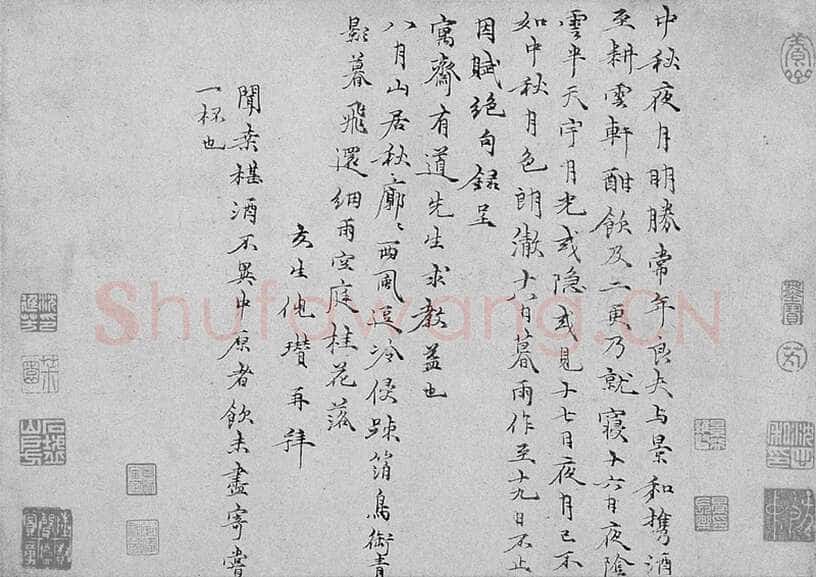 中秋夜月明勝常年良夫与景和攜酒
至耕雲軒酣飲及二更乃就寢十六日夜陰
雲半天宇月光或隐或見十七日夜月已不
如中秋月色朗澈十八日暮雨作至十九日不止
因賦絕句録呈
寓齋有道先生求教益也
八月山居秋廓〻西風逗冷侵踈箔鳥銜青
影暮飛還細雨空庭桂花落
友生倪瓚再拜
聞桑椹酒不異中原者飲未盡寄嘗
一杯也
Shufawang.CN